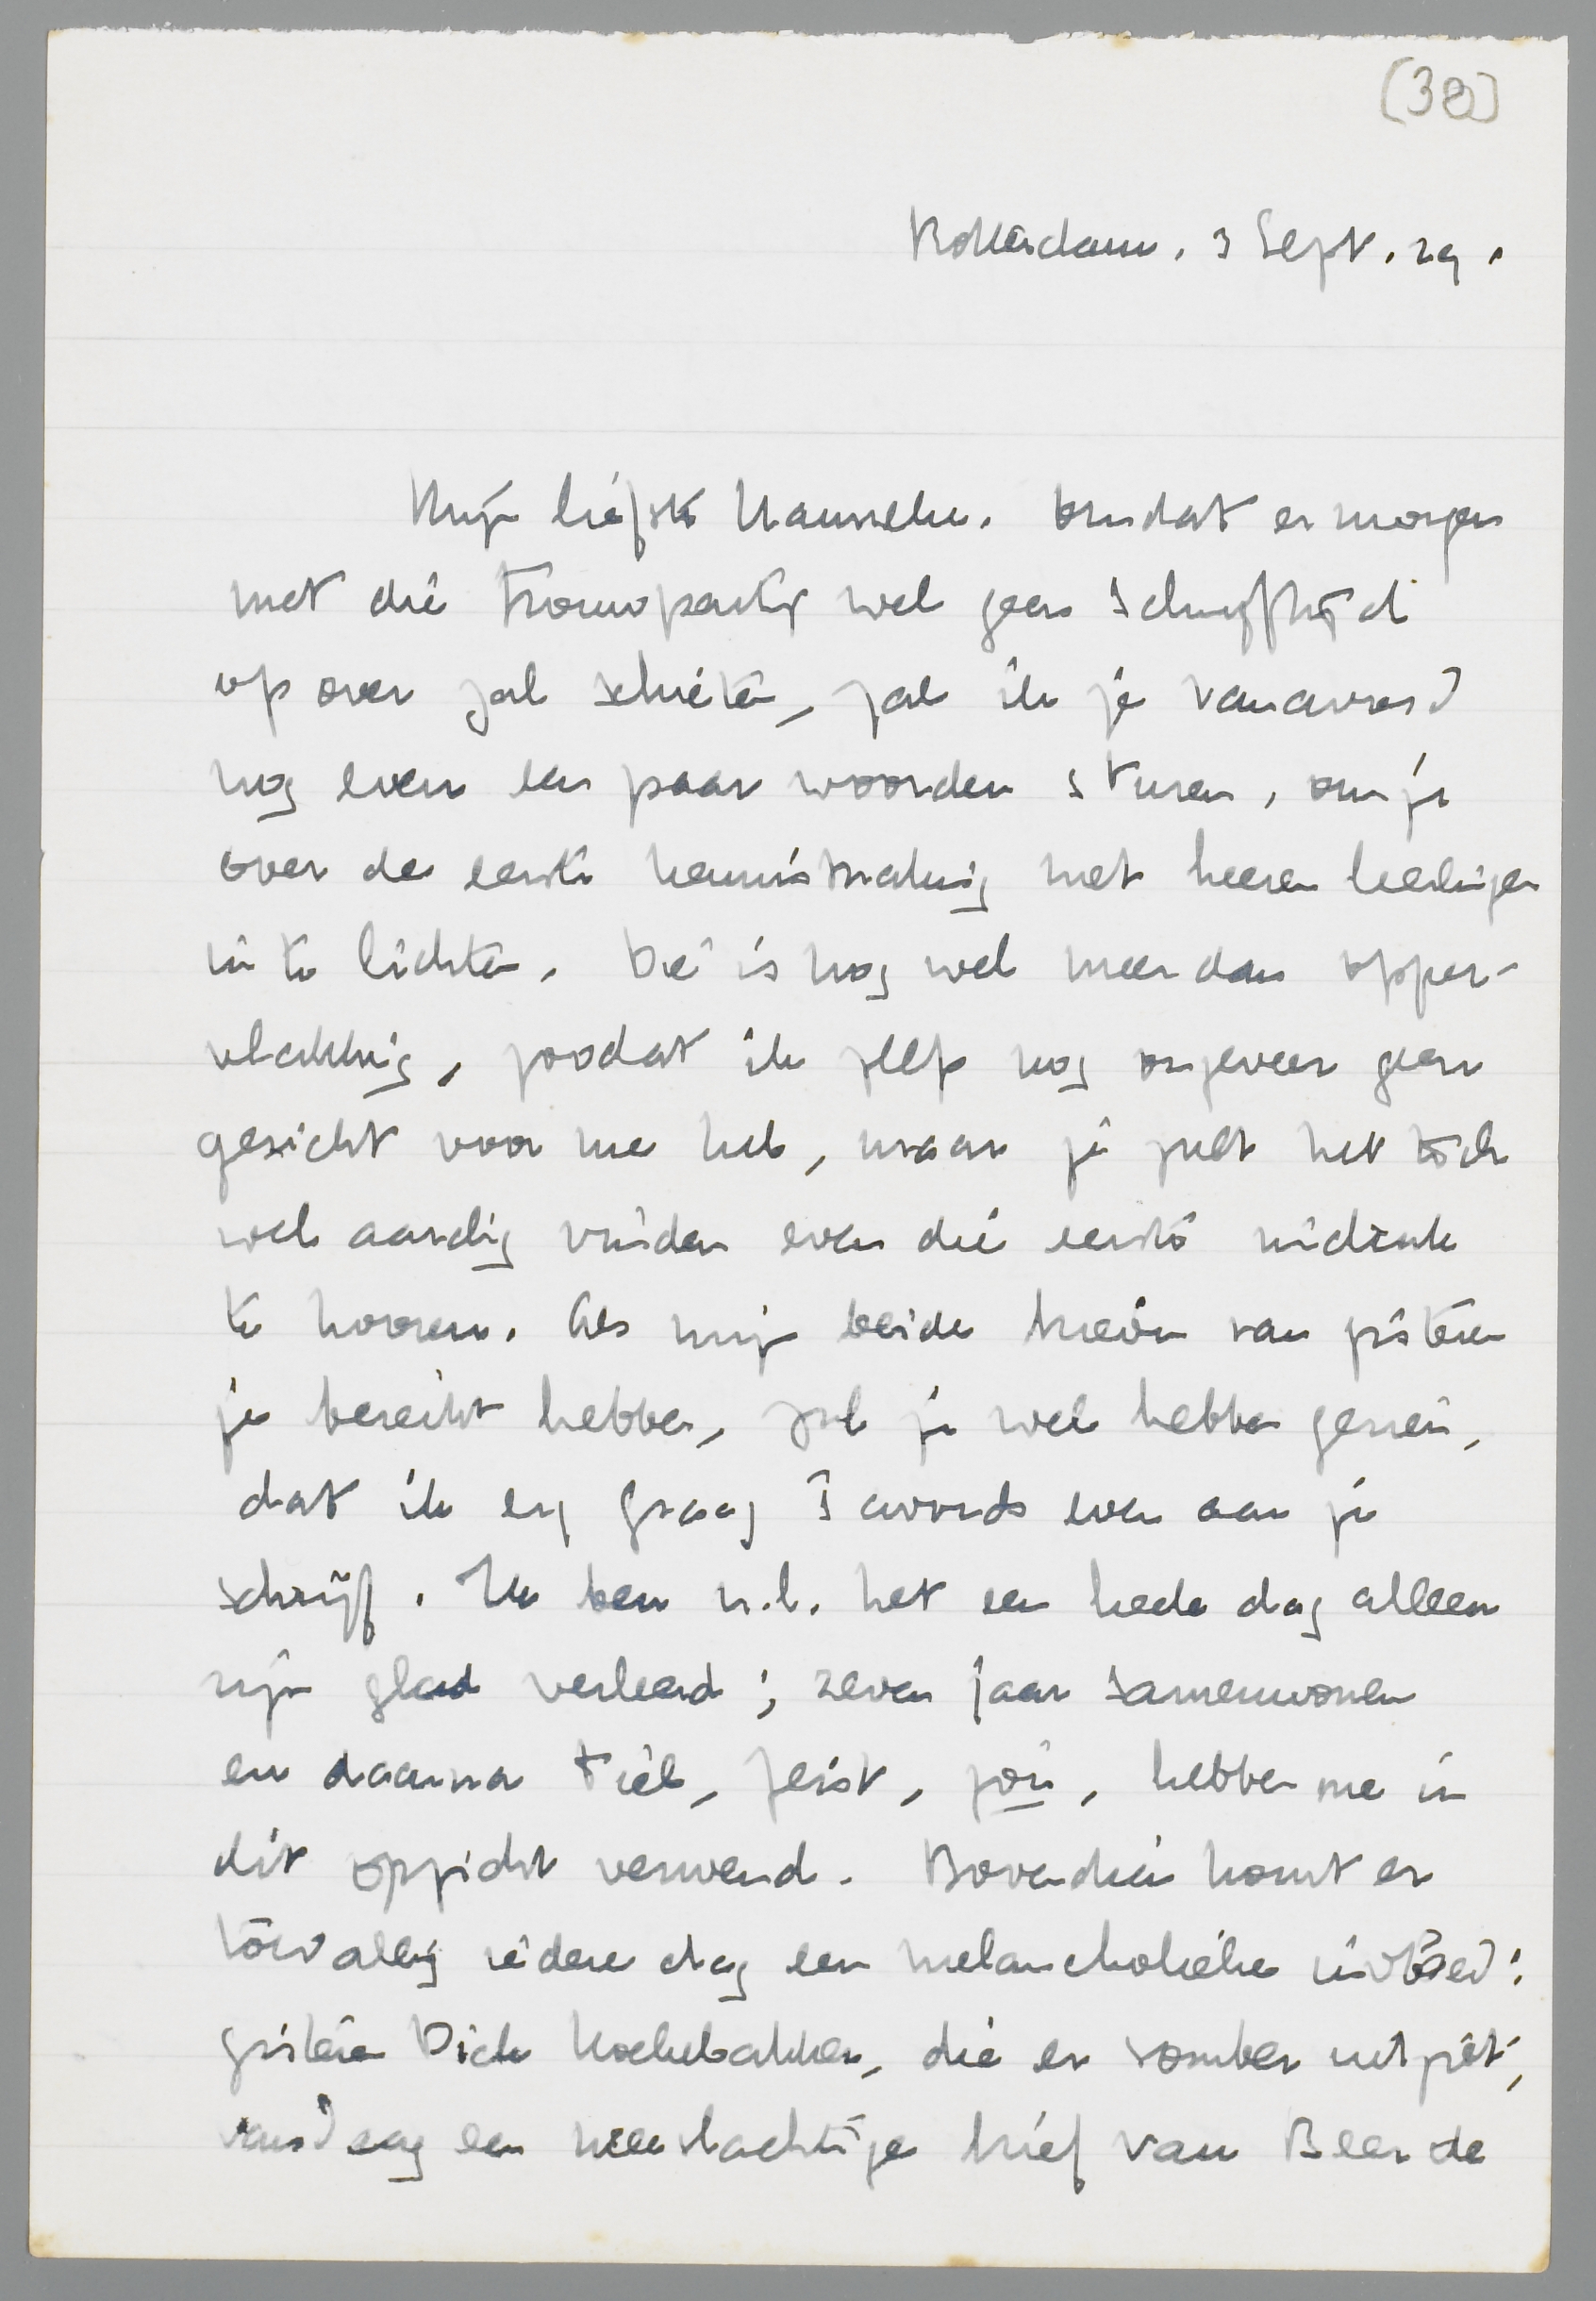 (38)
Rotterdam, 3 Sept. 29.
Mijn liefste Hanneke. Omdat er morgen
met die trouwpartij wel geen schrijftijd
op over zal schieten, zal ik je vanavond
nog even een paar woorden sturen, om je
over de eerste kennismaking met heeren leerlingen
in te lichten. Die is nog wel meer dan opper-
vlakkig, zoodat ik zelf nog ongeveer geen
gezicht voor me heb, maar je zult het toch
wel aardig vinden even die eerste indruk
te hooren. Als mijn beide brieven van gisteren
je bereikt hebben, zul je wel hebben gezien,
dat ik erg graag 's avonds even aan je
schrijf. Ik ben n.l. het een heele dag alleen
zijn glad verleerd; zeven jaar samenwonen
en daarna Tiel, Zeist, jou, hebben me in
dit opzicht verwend. Bovendien komt er
toevallig iedere dag een melancholieke invloed:
gisteren Dick Koekebakker, die er somber uitziet,
vandaag een neerslachtige brief van Beer de